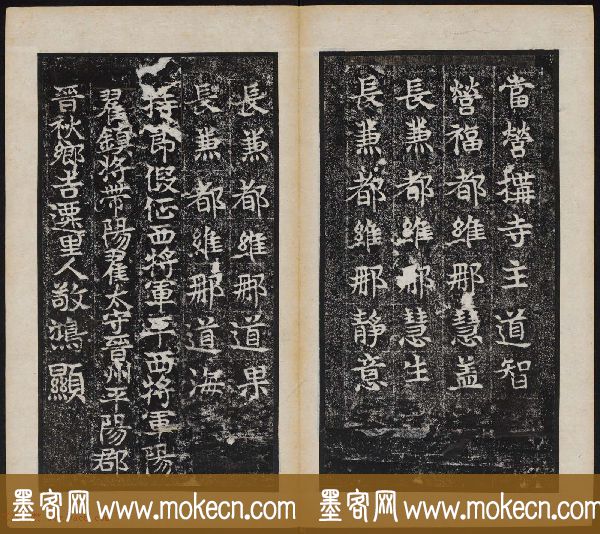 當營構寺主道智
營福都維那慧盖
長兼都維那慧生
長兼都維那靜意
長兼都維那道果
長兼都維那道海
持節假征西將軍平西將軍陽
翟鎮將帶陽翟太守晉州平陽郡
晉秋鄉吉遷里人敬鴻顯
墨客网 www.mokecn.com 墨客网 www.mokecn.com